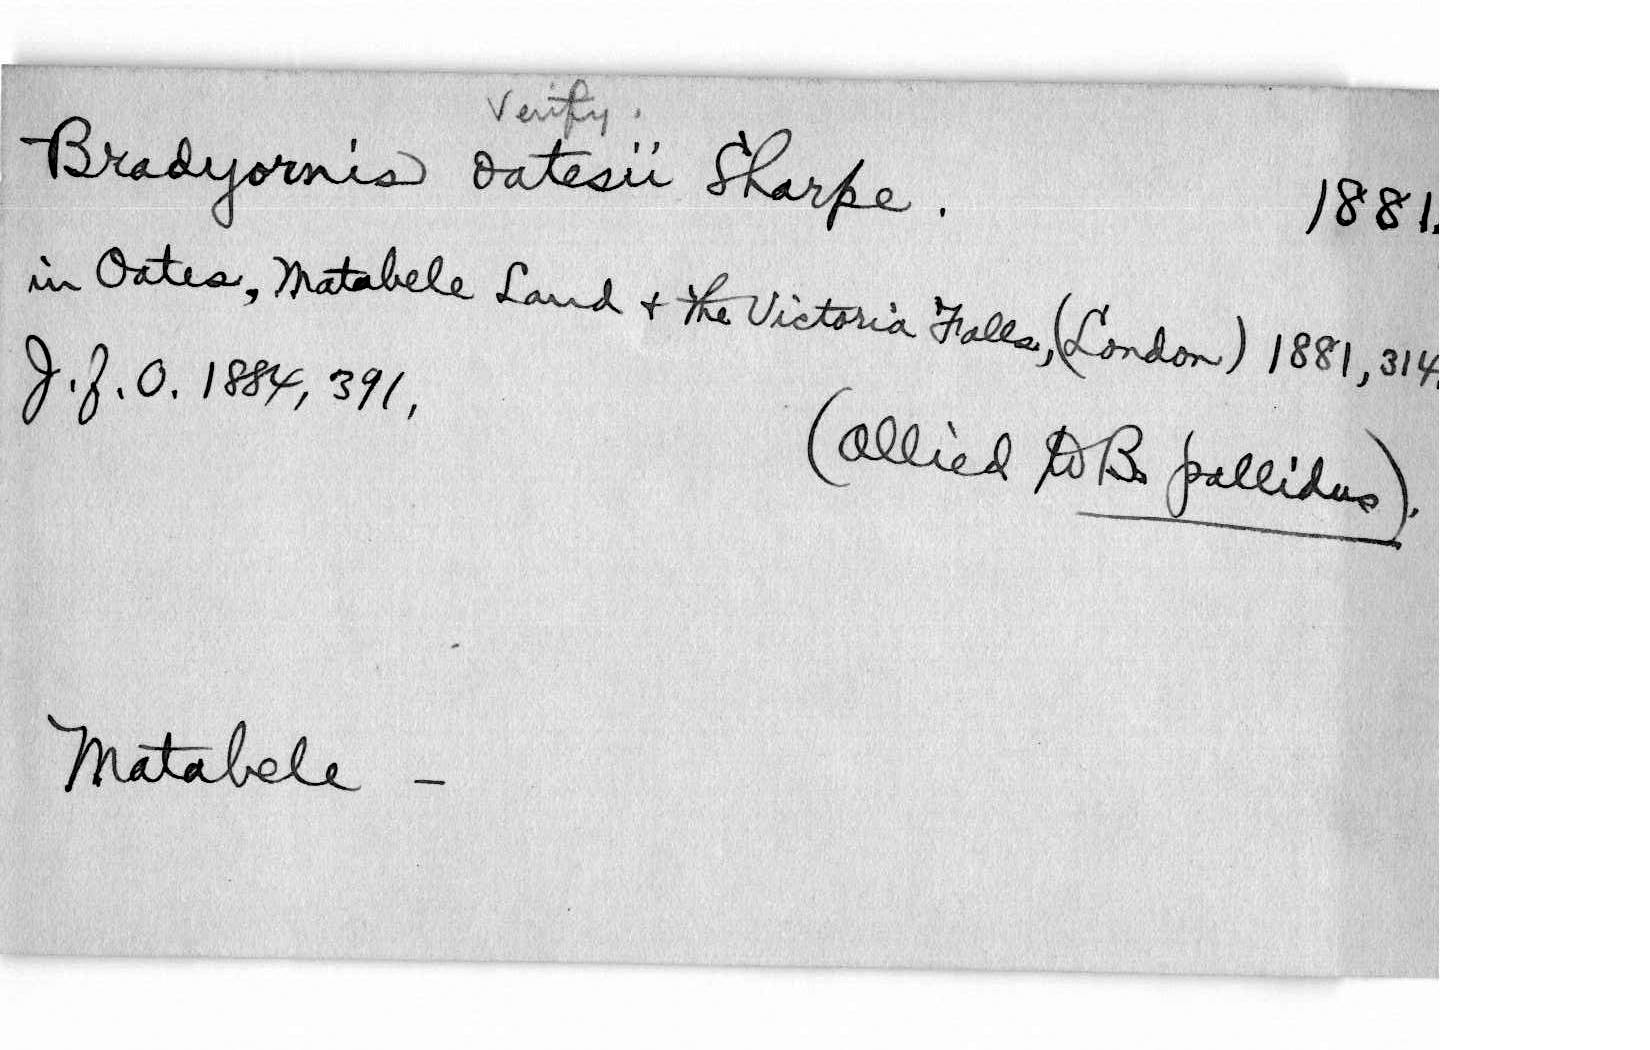 Verify.
Bradyornis oatesii Sharpe. 1881.
in Oates, Matabele Land & the Victoria Falls, (London) 1881, 314.
J.f.O. 1884, 391,
(allied to B. pallidus).
Matabele –